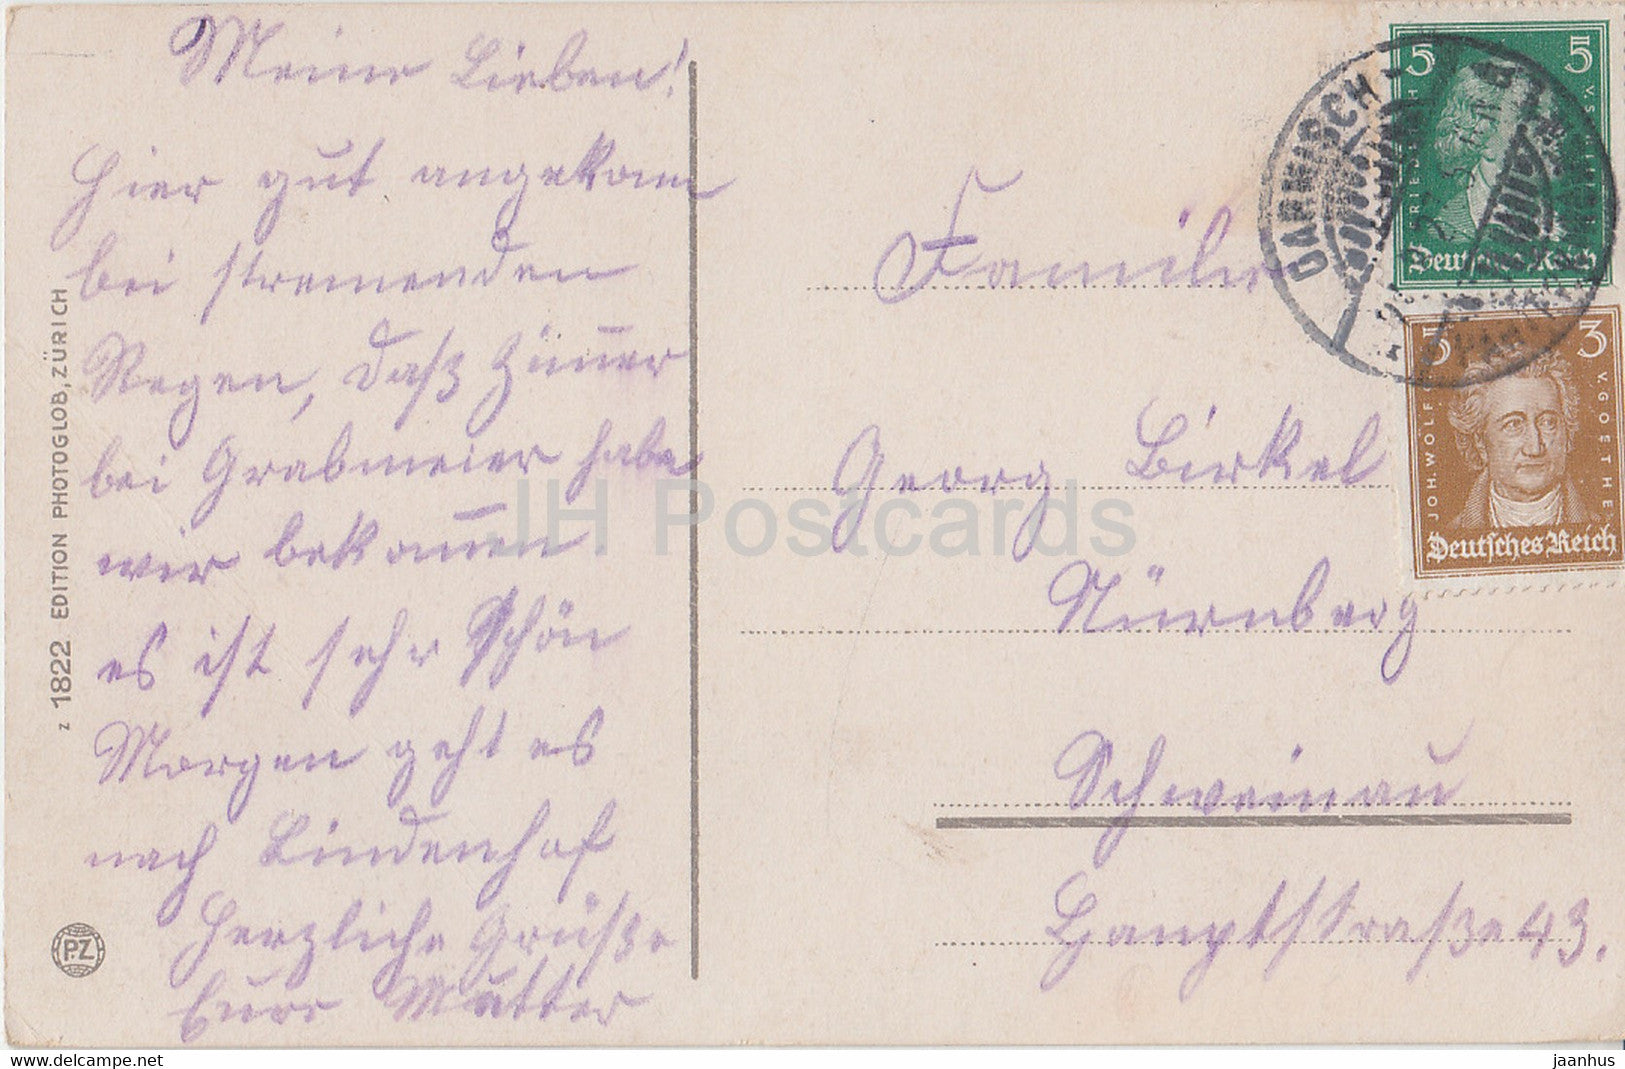 Meine Lieben!
Hier gut angekomm
bei strömenden
Regen, daß Zim̅er
bei Grabmeier habe
wir bekom̅en.
es ist sehr Schön
Morgen geht es
nach Lindenhof
Herzliche Grüße
Eure Mutter
Familie
Georg Birkel
Nürnberg
Schweinau
Hauptstraße 43.
z 1822 EDITION PHOTOGLOB, ZÜRICH
P.Z
GARMISCH
5 5
Deutsches Reich
3 3
JOH. WOLFG. V. GOETHE
Deutsches Reich
JH Postcards
www.delcampe.net
jaanhus